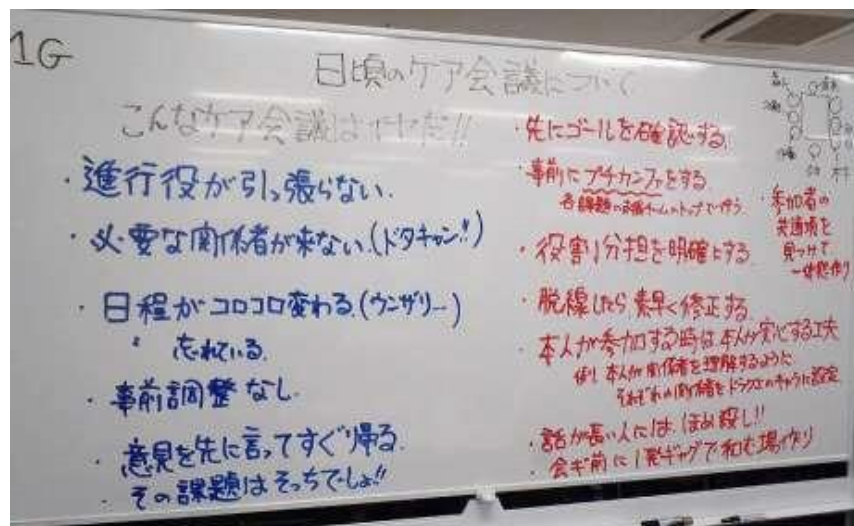 1G
日頃のケア会議について
こんなケア会議はイヤだ!!
・進行役が引っ張らない.
・必要な関係者が来ない(ドタキャン!!)
・日程がコロコロ変わる.(ウンザリー)
・忘れている.
・事前調整なし.
・意見を先に言ってすぐ帰る.
・その課題はそっちでしょ!!
・先にゴールを確認する.
・事前にプチカンファをする
各課題の チームのトップで行う
・役割分担を明確にする
・脱線したら素早く修正する
・本人が参加する時は本人が する工夫
例)本人が関係者を理解するように
それぞれの関係者をドラクエのキャラに設定
・話が長い人には、ほめ殺し!!
・会ギ前に1発ギャグで和む場作り
・参加者の
共通項を
見つけて
一体感作り